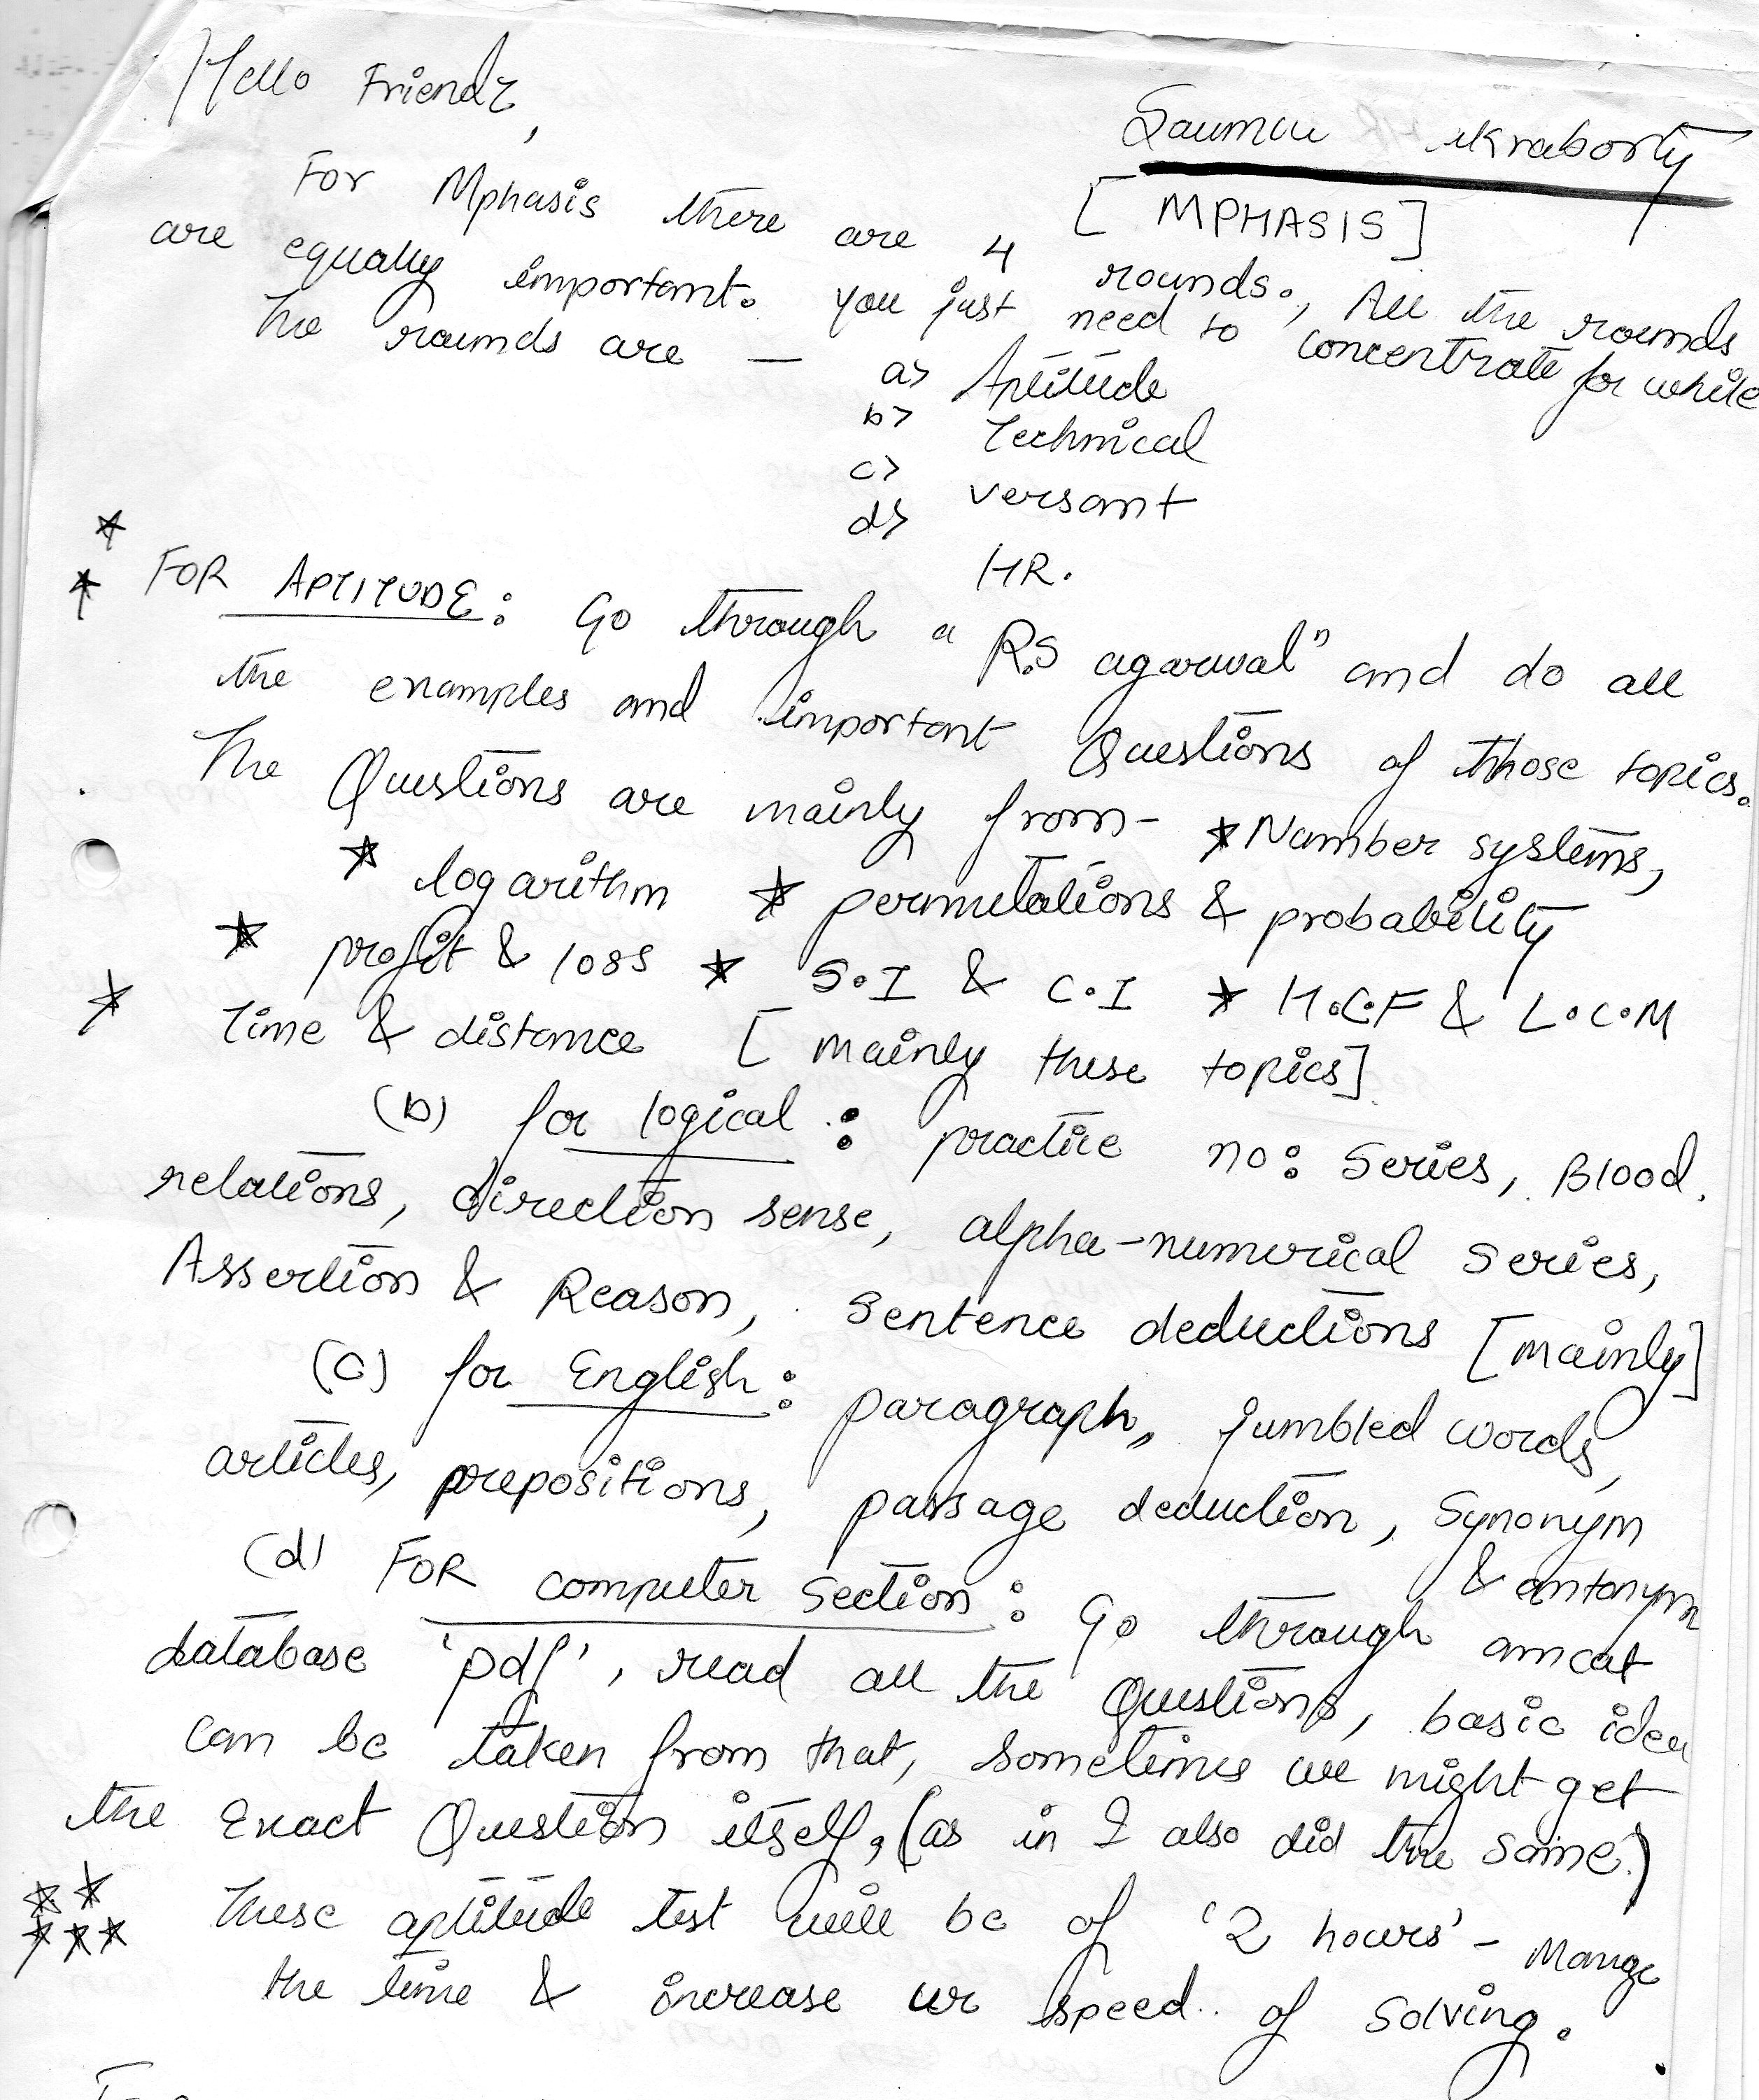 Hello Friendz,
[MPHASIS]
For Mphasis there are 4 rounds., All the rounds
are equally important. you just need to concentrate for while
The rounds are —
a> Aptitude
b> Technical
c> versant
d> HR.
*
* FOR APTITUDE: Go through "R.S agarwal" and do all
the examples and important Questions of those topics.
The Questions are mainly from- * Number systems,
* logarithm * permutations & probability
* profit & loss * S.I & C.I * H.C.F & L.C.M
* Time & distance [mainly these topics]
(b) for logical: practice no: Series, Blood.
relations, direction sense, alpha-numerical series,
Assertion & Reason, Sentence deductions [mainly]
(c) for English: paragraph,, jumbled words,
articles, prepositions, passage deduction, Synonym
& antonym
(d) FOR computer Section: Go through amcat
database 'pdf', read all the Questions, basic idea
can be taken from that, sometimes we might get
the Exact Question itself, (as in I also did the same.)
** These aptitude test will be of '2 hours' - Mange
*** the time & increase ur speed.. of solving.